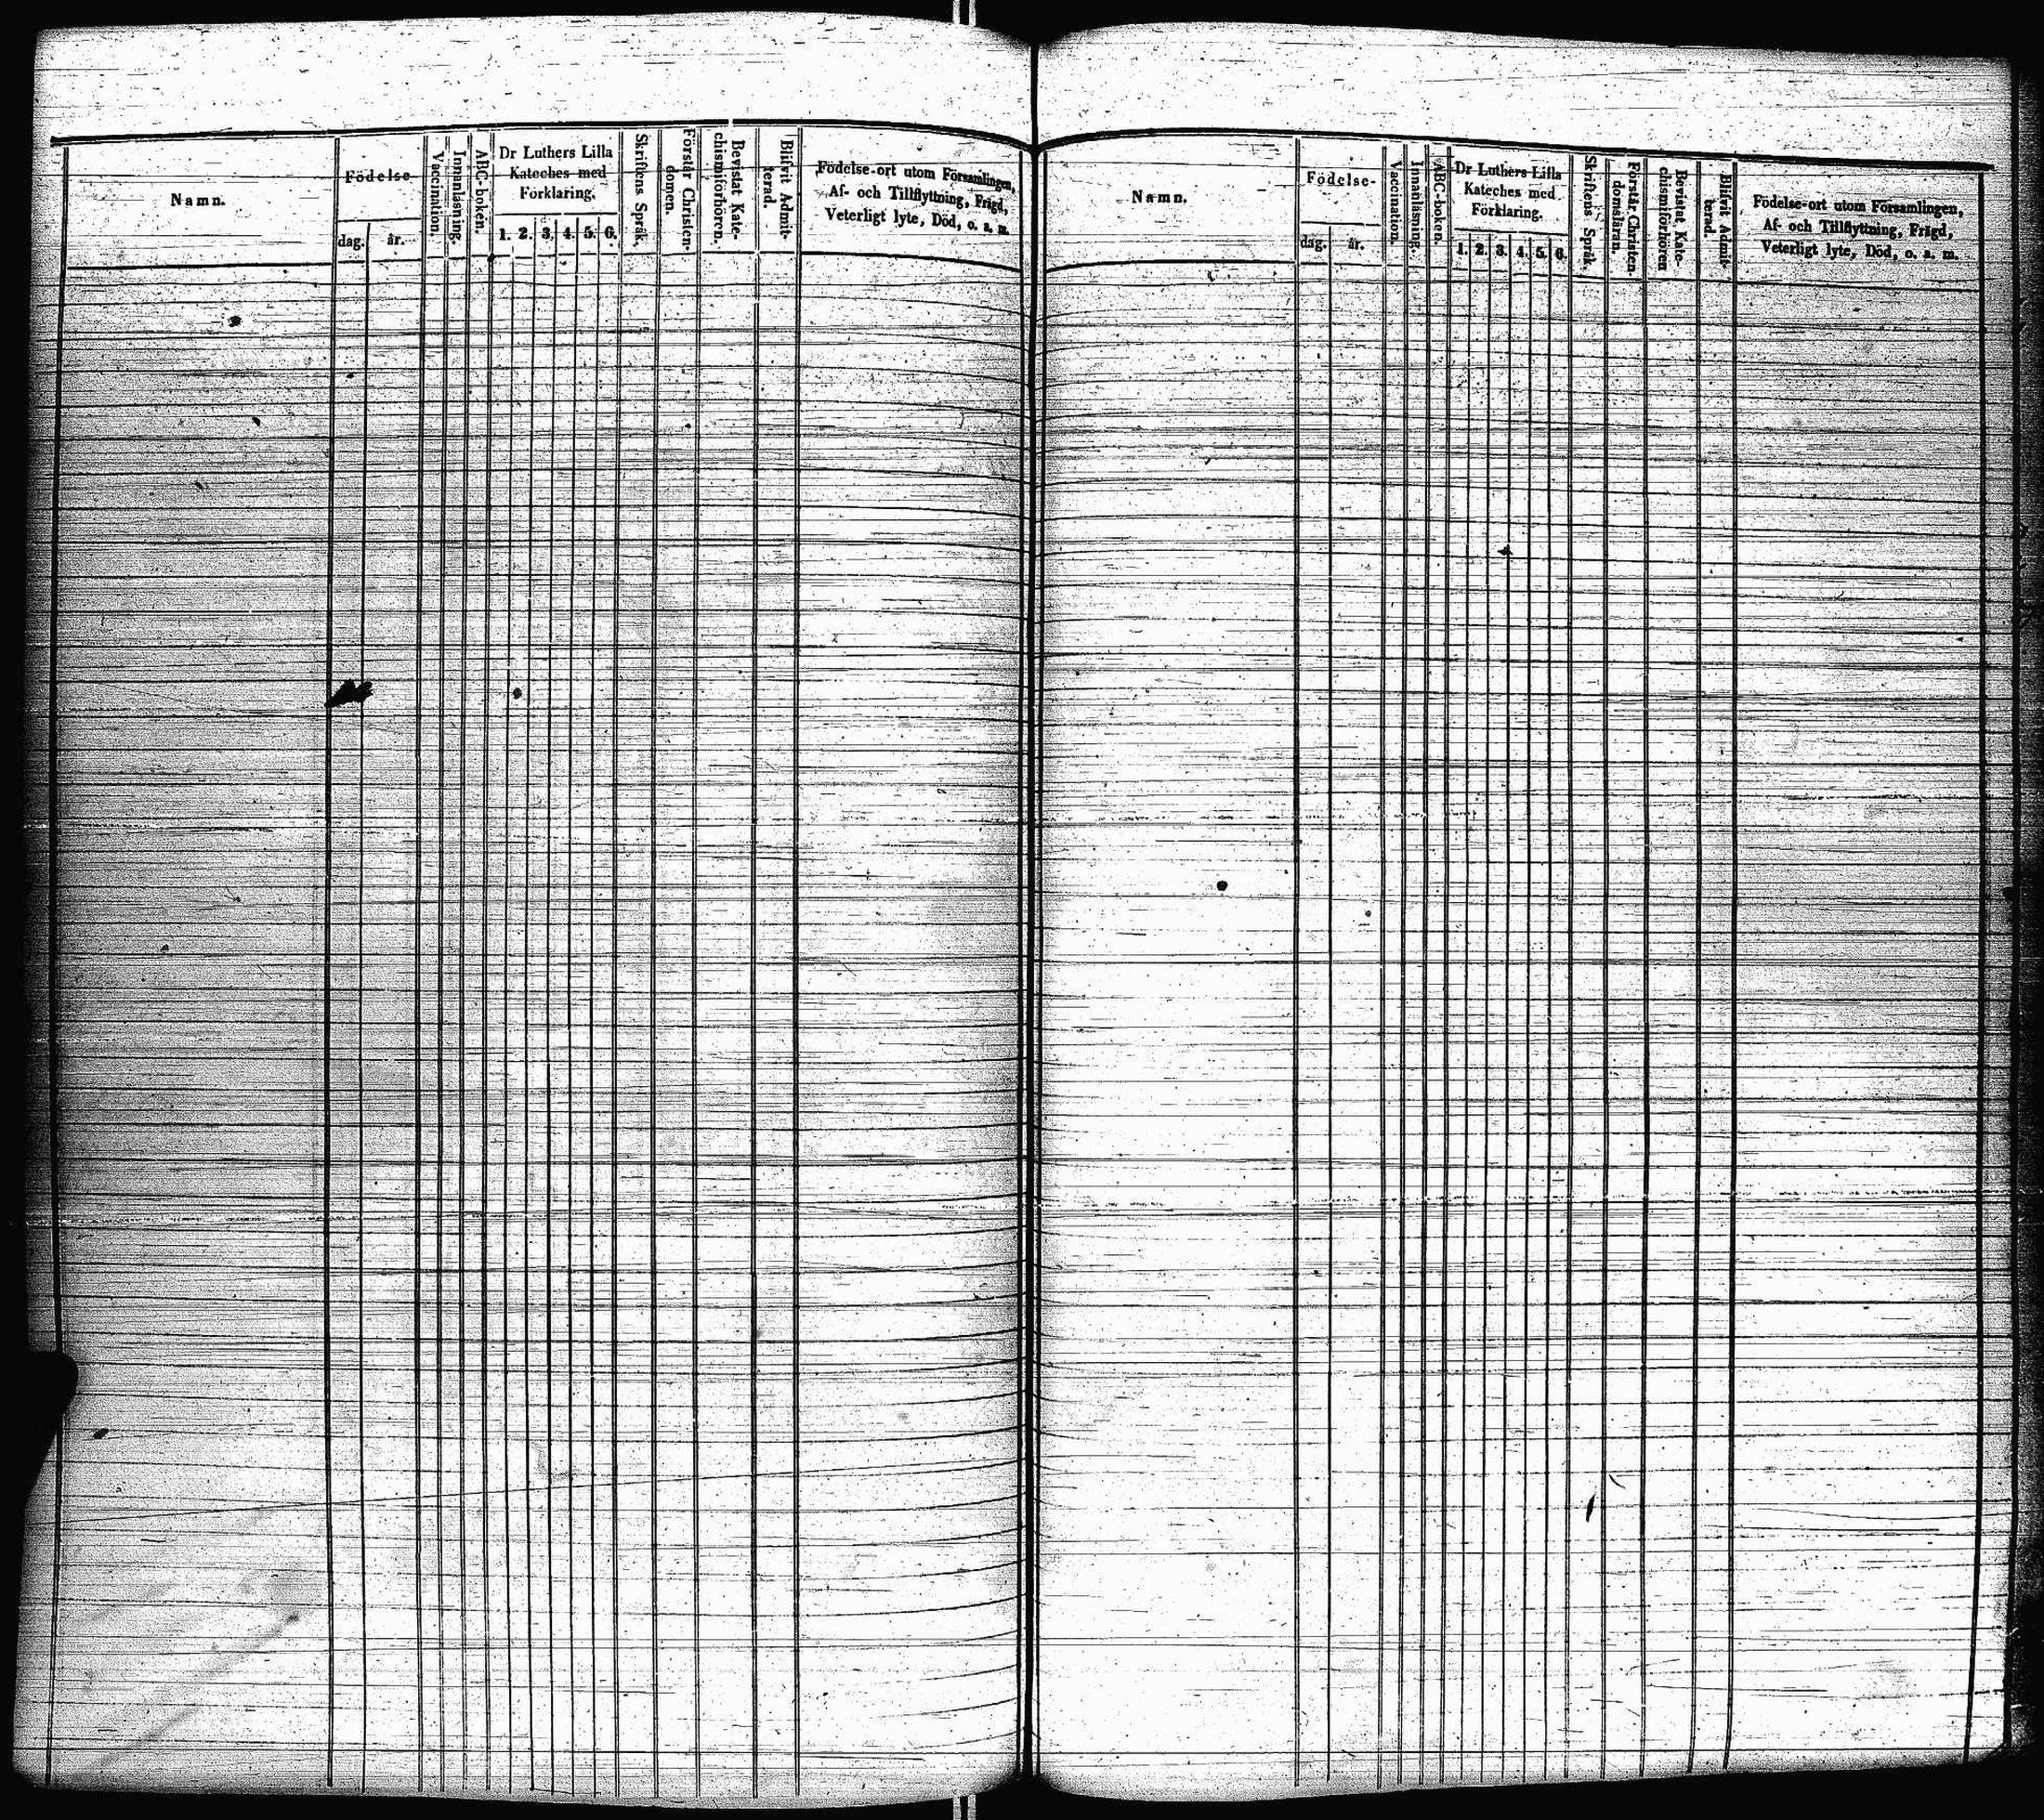 Namn.
Födelse
dag.
år.
Vaccination.
Innanläsning.
ABC-boken.
Dr Luthers Lilla
Kateches med
Förklaring.
1. 2. 3. 4. 5. 6.
Skriftens Språk.
Förstår Christen-
domen.
Bevistat Kate-
chismiförhören.
Blifvit Admit-
terad.
Födelse-ort utom Församlingen,
Af- och Tillflyttning, Frägd,
Veterligt lyte, Död, o. s. m.
Namn.
Födelse-
dag.
år.
Vaccination.
Innanläsning.
ABC-boken.
Dr Luthers Lilla
Kateches med
Förklaring.
1. 2. 3. 4. 5. 6.
Skriftens Språk.
Förstår Christen-
domsläran.
Bevistat Kate-
chismiförhören
Blifvit Admit-
terad.
Födelse-ort utom Församlingen,
Af- och Tillflyttning, Frägd,
Veterligt lyte, Död, o. s. m.